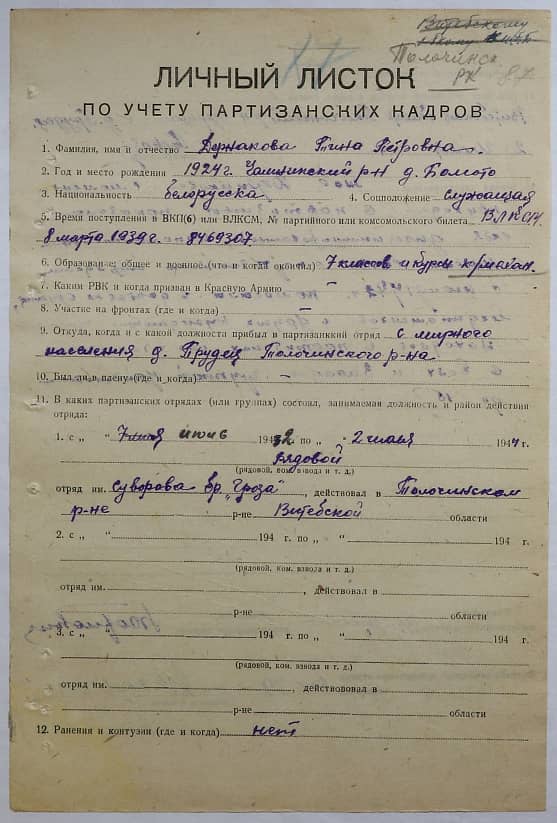 Витебскому
Толочинск
РК
ЛИЧНЫЙ ЛИСТОК
ПО УЧЕТУ ПАРТИЗАНСКИХ КАДРОВ
1. Фамилия, имя и отчество Держакова Нина Петровна.
2. Год и место рождения 1924 г. Чашникский р-н д.
3. Национальность белорусска 4. Соцположение служащая
5. Время поступления в ВКП(б) или ВЛКСМ, № партийного или комсомольского билета ВЛКСМ
8 марта 1939 г. 8469307
6. Образование общее и военное (что и когда окончил) 7 классов и курсы
7. Каким РВК и когда призван в Красную Армию —
8. Участие на фронтах (где и когда) —
9. Откуда, когда и с какой должности прибыл в партизанкий отряд с мирного
населения д. Трудец Толочинского р-на
10. Был ли в плену (где и когда) —
11. В каких партизанских отрядах (или группах) состоял, занимаемая должность и район действия
отряда:
1. с „ “ июнь 1942 г. по „ “ 2 июля 1944 г.
Рядовой
(рядовой, ком. взвода и т. д.)
отряд им. Суворова бр. „Гроза“, действовал в Толочинском
р-не р-не Витебской области
2. с „ “ 194 г. по „ “ 194 г.
(рядовой, ком. взвода и т. д.)
отряд им. , действовал в
р-не области
3. с „ “ 194 г. по „ “ 194 г.
(рядовой, ком. взвода и т. д.)
отряд им. , действововал в
р-не области
12. Ранения и контузии (где и когда) нет